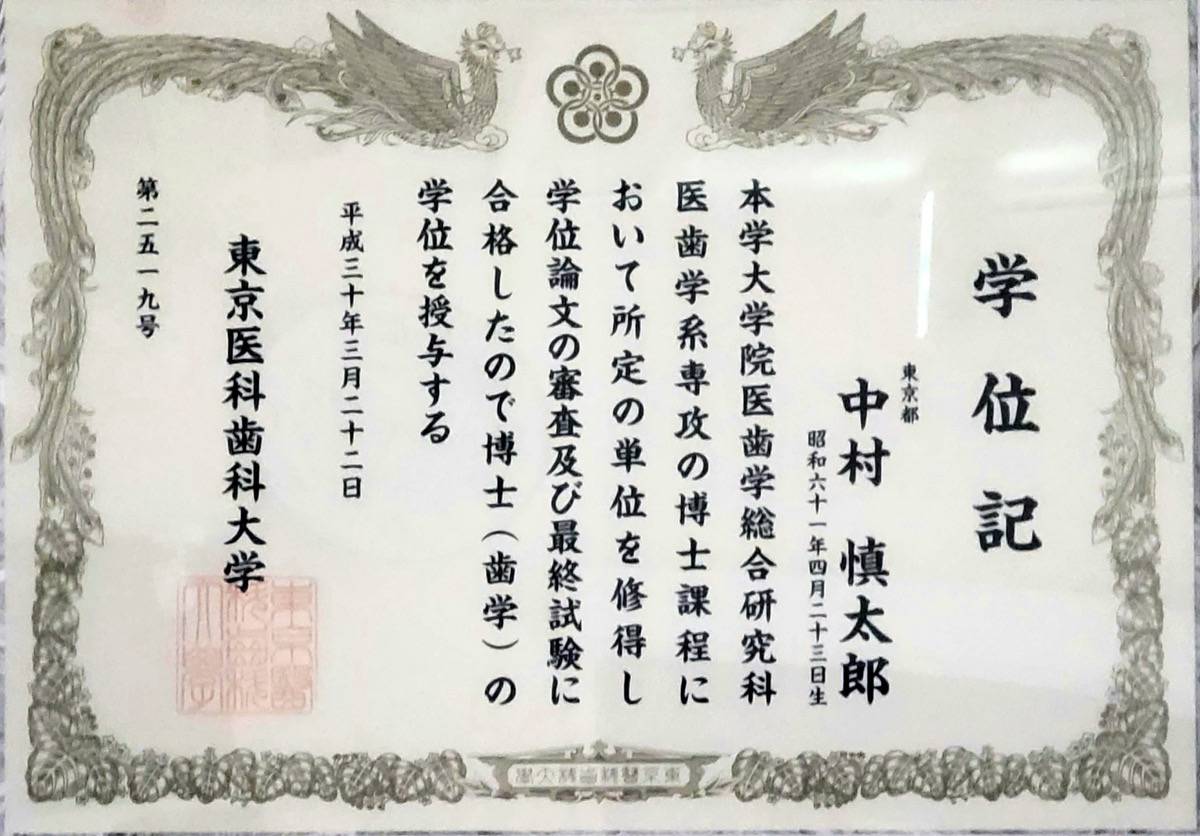 学位記
東京都
中村 慎太郎
昭和六十一年四月二十三日生
本学大学院医歯学総合研究科
医歯学系専攻の博士課程に
おいて所定の単位を修得し
学位論文の審査及び最終試験に
合格したので博士(歯学)の
学位を授与する
平成三十年三月二十二日
東京医科歯科大学
第二五一九号
東京醫科齒科大學